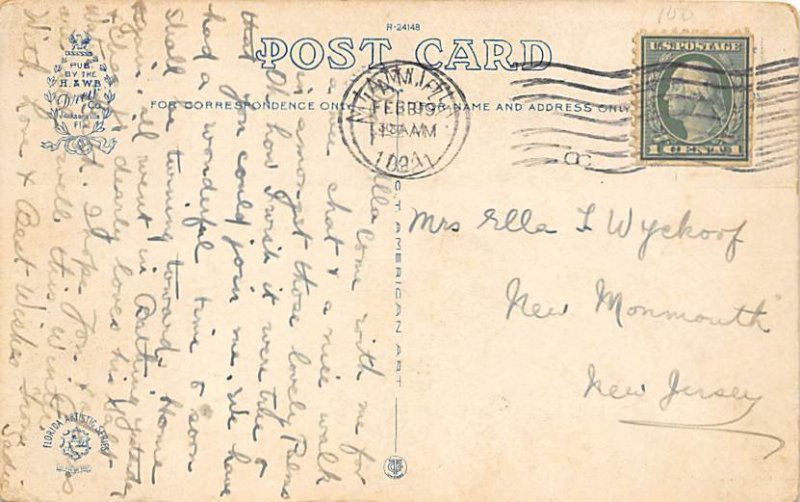 R-24148
POST CARD
FOR CORRESPONDENCE ONLY
FOR NAME AND ADDRESS ONLY
PUB.
BY THE
H. & W.B.
Drew
Co.
Jacksonville
Fla.
MIAMI, FLA.
FEB 19
AM
1921
U.S. POSTAGE
1 CENT 1
100
Mrs Ella I Wyckoof
New Monmouth
New Jersey
Ella Come with me for
a nice chat & a nice walk
in amongst those lovely Palms
Oh how I wish it were true &
that you could join me. We have
had a wonderful time & soon
shall be turning towards Home
again all went in Bathing yesterday
& dearly loves his
I hope you &
are well this winter
With Love & Best Wishes from
Sadie
FLORIDA ARTISTIC SERIES
AMERICAN ART